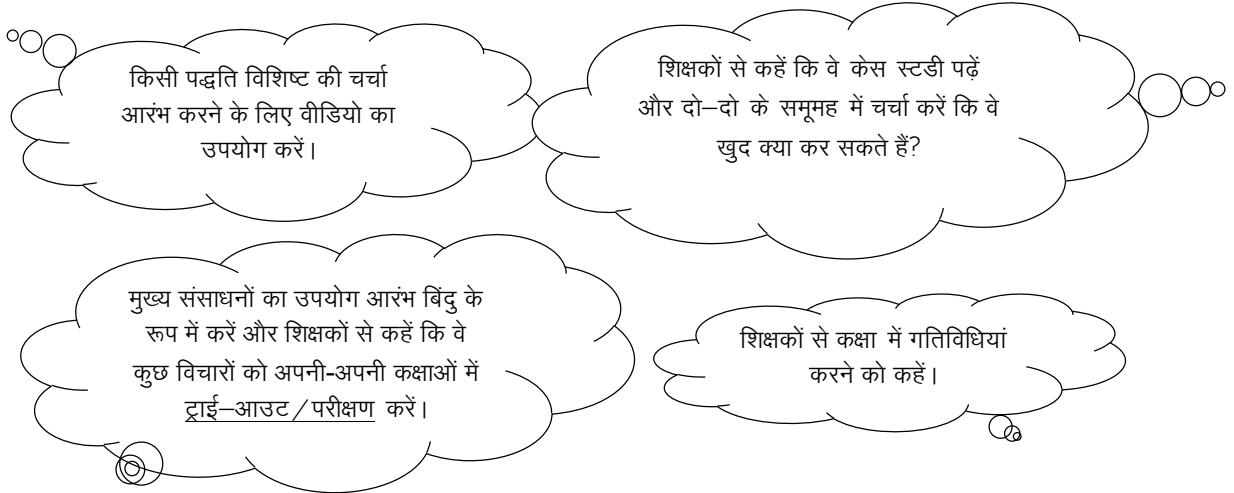 किसी पद्धति विशिष्ट की चर्चा
आरंभ करने के लिए वीडियो का
उपयोग करें।
शिक्षकों से कहें कि वे केस स्टडी पढ़ें
और दो–दो के समूमह में चर्चा करें कि वे
खुद क्या कर सकते हैं?
मुख्य संसाधनों का उपयोग आरंभ बिंदु के
रूप में करें और शिक्षकों से कहें कि वे
कुछ विचारों को अपनी-अपनी कक्षाओं में
ट्राई–आउट/परीक्षण करें।
शिक्षकों से कक्षा में गतिविधियां
करने को कहें।